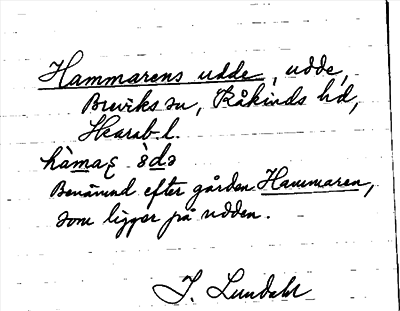 Hammarens udde, udde,
Breviks sn, Kåkinds hd,
Skarab. l.
hàmaʂ ùdə
Benämnd efter gården Hammaren,
som ligger på udden.
J. Lundahl